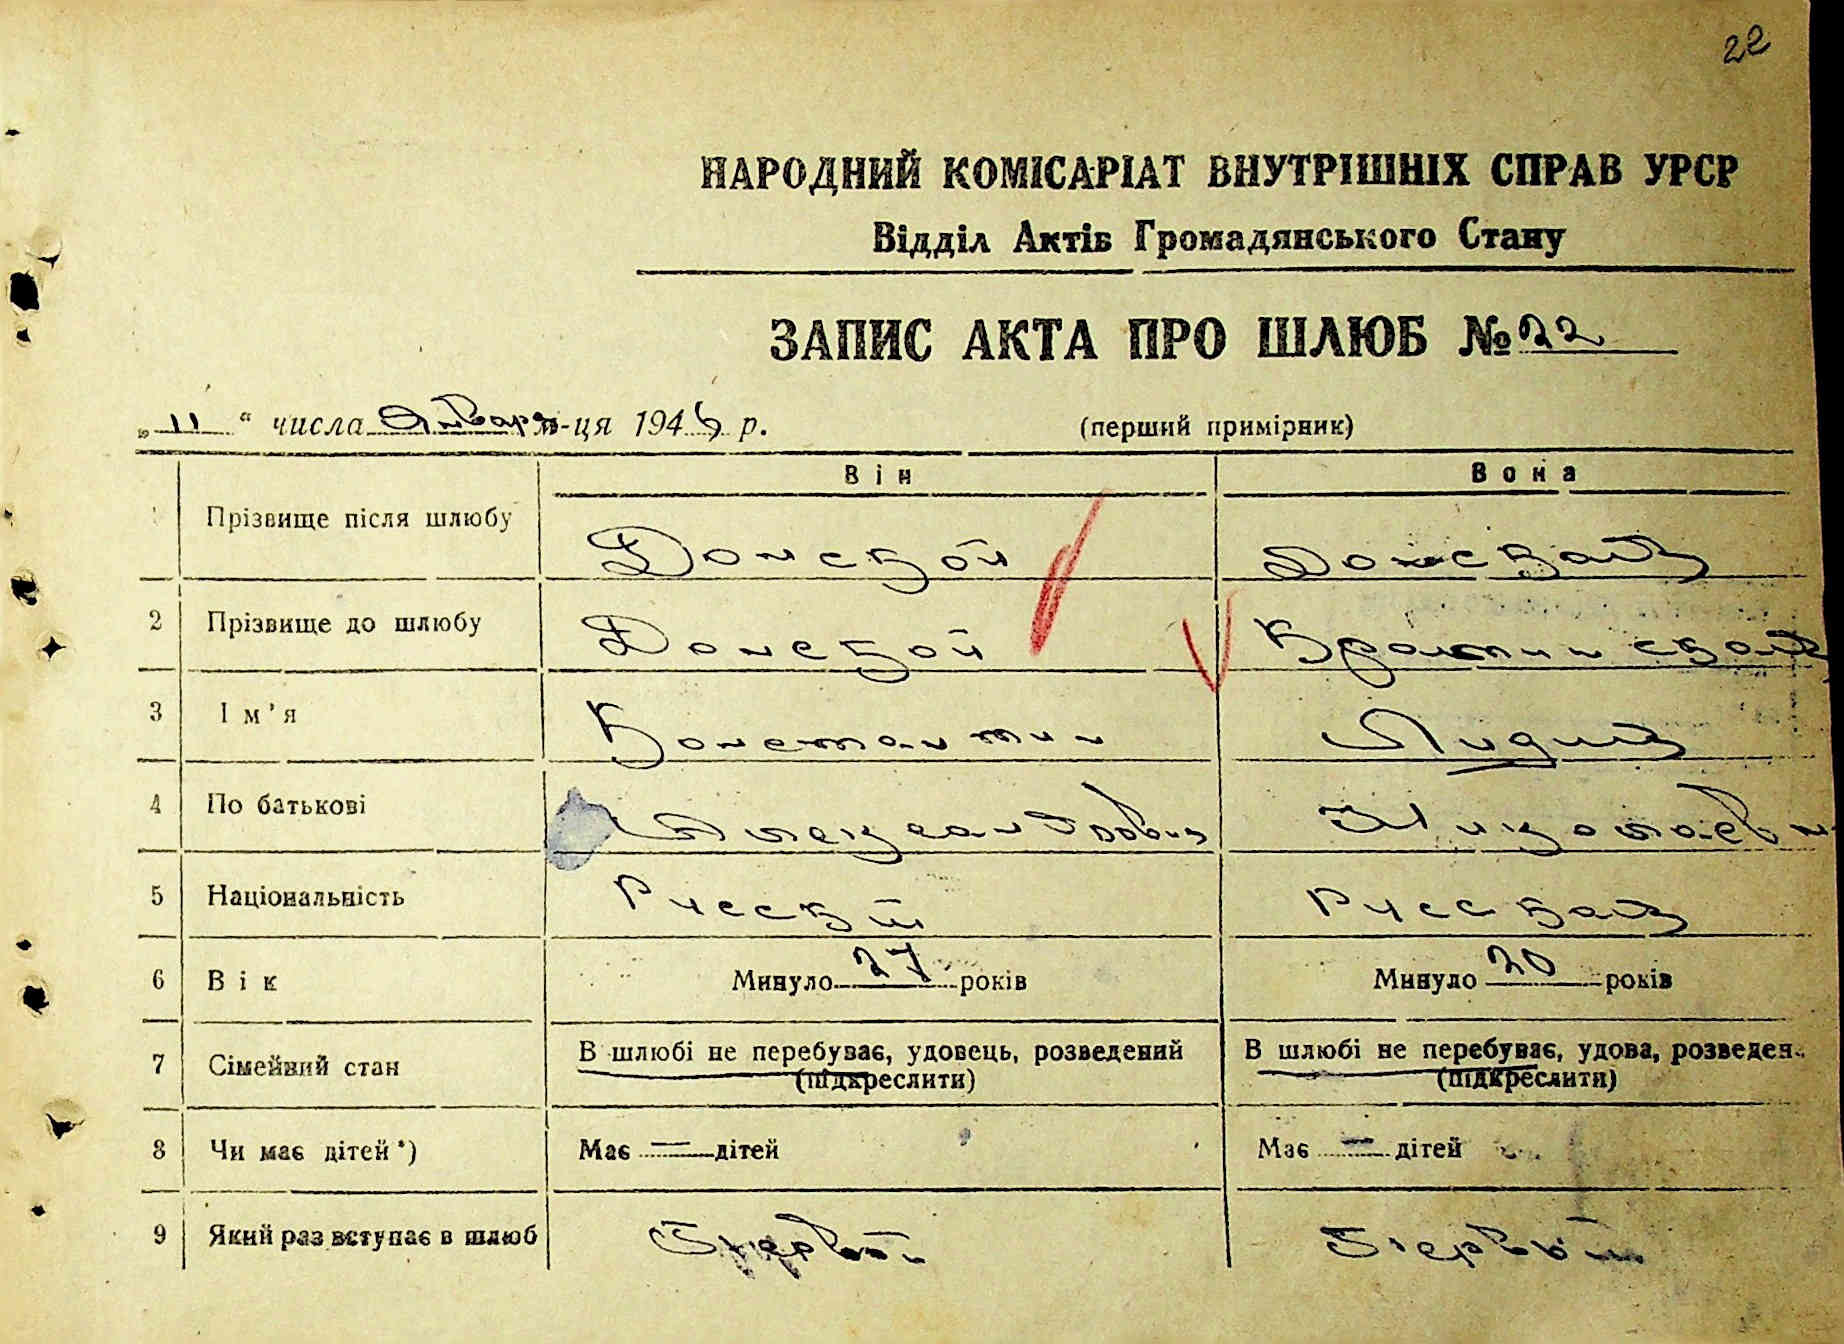 22
НАРОДНИЙ КОМІСАРІАТ ВНУТРІШНІХ СПРАВ УРСР
Відділ Актів Громадянського Стану
ЗАПИС АКТА ПРО ШЛЮБ № 22
„ 11 “ числа Января м-ця 194 р.
(перший примірник)
Він Вона
Прізвище після шлюбу Донской Донская
2 Прізвище до шлюбу Донской
3 Ім'я Константин Лидия
4 По батькові Александрович Николаевн
5 Національність Русский Русская
6 Вік Минуло 27 років Минуло 20 років
7 Сімейний стан В шлюбі не перебуває, удовець, розведений (підкреслити) В шлюбі не перебуває, удова, розведен (підкреслити)
8 Чи має дітей*) Має — дітей Має — дітей
9 Який раз вступає в шлюб Первый Первый